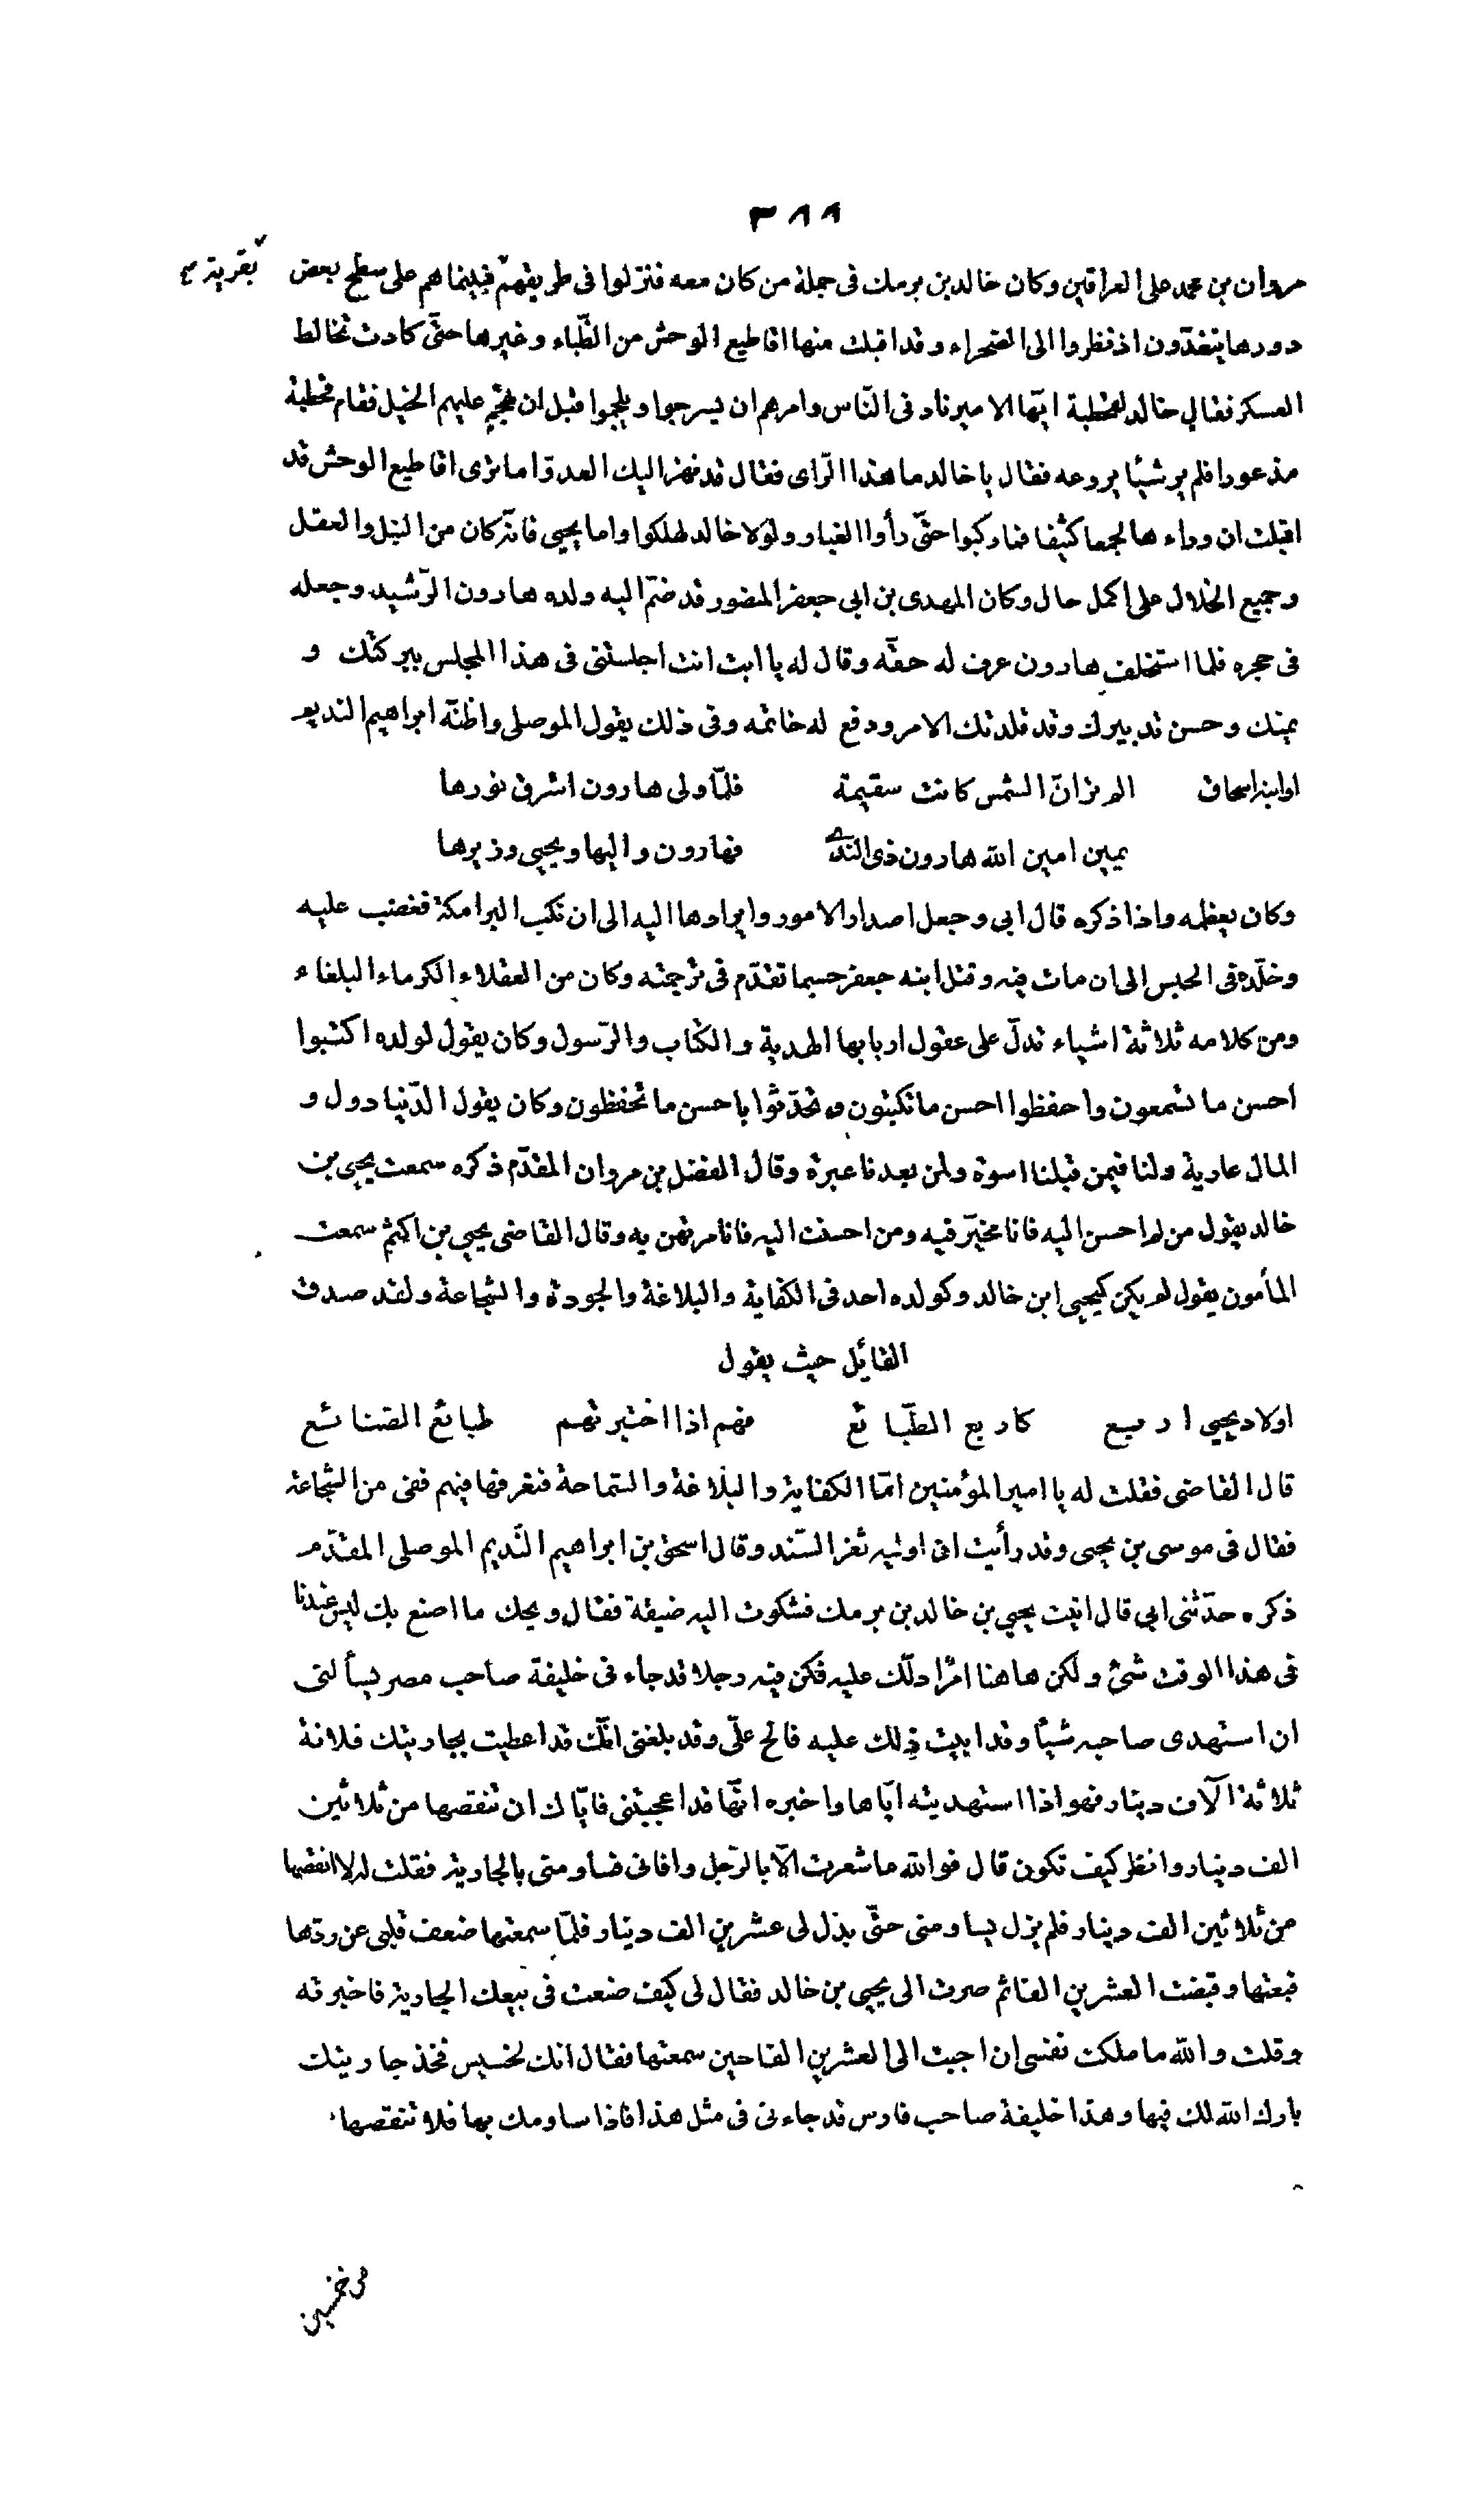 ٣٨٨
مروان بن محمد على العراقين وكان خالد بن برمك فى جملة من كان معه فنزلوا فى طريقهم فبينما هم على سطح بعض
بقرية صح
دورها يتغدّون اذ نظروا الى الصحراء وقد اقبلت منها اقاطيع الوحش من الظّباء وغيرها حتّى كادت تخالط
العسكر فقال خالد لقحطبة ايّها الامير ناد فى النّاس وامرهم ان يسرجوا ويلجموا قبل ان تهجم عليهم الخيل فقام قحطبة
مذعورا فلم ير شيئا يروعه فقال يا خالد ما هذا الرّاى فقال قد نهز اليك العدوّ اما ترى اقاطيع الوحش قد
اقبلت ان وراءها لجمعا كثيفا فما ركبوا حتّى رأوا الغبار ولولا خالد لهلكوا واما يحيى فانّه كان من النبل والعقل
وجميع الخلال على اكمل حال وكان المهدى بن ابى جعفر المنصور قد ضمّ اليه ولده هارون الرّشيد وجعله
فى حجره فلما استخلف هارون عرف له حقّه وقال له يا ابت انت اجلستنى فى هذا المجلس ببركتك و
يمنك وحسن تدبيرك وقد قلدتك الامر ودفع له خاتمه وفى ذلك يقول الموصلى واظنّه ابراهيم النديم
اوابنه اسحاق الم تر انّ الشمس كانت سقيمة فلمّا ولى هارون اشرق نورها
بيمين امين الله هارون ذى الندى فهارون واليها ويحيى وزيرها
وكان يعظمه واذا ذكره قال ابى وجعل اصدار الامور وايرادها اليه الى ان نكب البرامكة فغضب عليه
وخلّده فى الحبس الى ان مات فيه وقتل ابنه جعفر حسبما تقدّم فى ترجمته وكان من العقلاء الكرماء البلغاء
ومن كلامه ثلاثة اشياء تدلّ على عقول اربابها الهدية والكتاب والرّسول وكان يقول لولده اكتبوا
احسن ما تسمعون واحفظوا احسن ما تكتبون وتحدّثوا باحسن ما تحفظون وكان يقول الدّنيا دول و
المال عارية ولنا فيمن قبلنا اسوة ولمن بعدنا عبرة وقال الفضل بن مروان المقدّم ذكره سمعت يحيى بن
خالد يقول من لم احسن اليه فانا مخيّر فيه ومن احسنت اليه فانا مرتهن به وقال القاضى يحيى بن اكثم سمعت
المأمون يقول لم يكن كيحيى ابن خالد وكولده احد فى الكفاية والبلاغة والجودة والشجاعة ولقد صدق
القائل حيث يقول
اولاد يحيى اربع كاربع الطّبائع فهم اذا اختبرتهم طبائع الصنائع
قال القاضى فقلت له يا امير المؤمنين امّا الكفاية والبلاغة والسّماحة فنعرفها فيهم ففى من الشجاعة
فقال فى موسى بن يحيى وقد رأيت انى اوليه ثغر السّند وقال اسحق بن ابراهيم النّديم الموصلى المقدّم
ذكره حدّثنى ابى قال اتيت يحيى بن خالد بن برمك فشكوت اليه ضيقة فقال ويحك ما اصنع بك ليس عندنا
فى هذا الوقت شئ ولكن هاهنا امرًا دلّك عليه فكن فيه رجلا قد جاء فى خليفة صاحب مصر يسألنى
ان استهدى صاحبه شيئا وقد ابيت ذلك عليه فالح علىّ وقد بلغنى انّك قد اعطيت بجاريتك فلانة
ثلاثة آلاف دينار فهو اذا استهديته ايّاها واخبره انّها قد اعجبتنى فايّاك ان تنقصها من ثلاثين
الف دينار وانظر كيف تكون قال فوالله ما شعرت الّا بالرّجل وافانى فساومنى بالجارية فقلت له لا انقصها
من ثلاثين الف دينار فلم يزل يساومنى حتّى بذل لى عشرين الف دينار فلمّا سمعتها ضعف قلبى عن ردّها
فبعتها وقبضت العشرين الفا ثم صرت الى يحيى بن خالد فقال لى كيف صنعت فى بيعك الجارية فاخبرته
وقلت والله ما ملكت نفسى ان اجبت الى العشرين الفا حين سمعتها فقال انك لخسيس فخذ جاريتك
بارك الله لك فيها وهذا خليفة صاحب فارس قد جاءنى فى مثل هذا فاذا ساومك بها فلا تنقصها
من خمسين